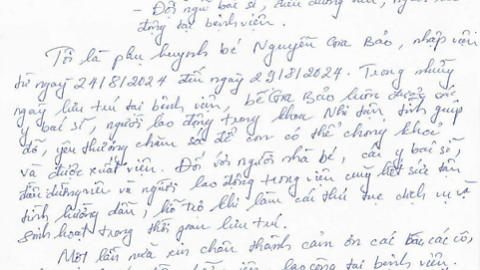 - Đội ngũ bác sĩ, điều dưỡng viên, người lao
động tại bệnh viện.
Tôi là phụ huynh bé Nguyễn Gia Bảo, nhập viện
từ ngày 24/8/2024 đến ngày 29/8/2024. Trong những
ngày lưu trú tại bệnh viện, bé Gia Bảo luôn được các
y bác sĩ, người lao động trong khoa Nhi tận tình giúp
đỡ, yêu thương chăm sóc để con có thể chóng khoẻ
và được xuất viện. Đối với người nhà bé, các y bác sĩ,
điều dưỡng viên và người lao động trong viện cũng hết sức tận
tình hướng dẫn, hỗ trợ khi làm các thủ tục dịch vụ và
sinh hoạt trong thời gian lưu trú.
Một lần nữa xin chân thành cảm ơn các bác, các cô,
viên, lao công tại bệnh viện.